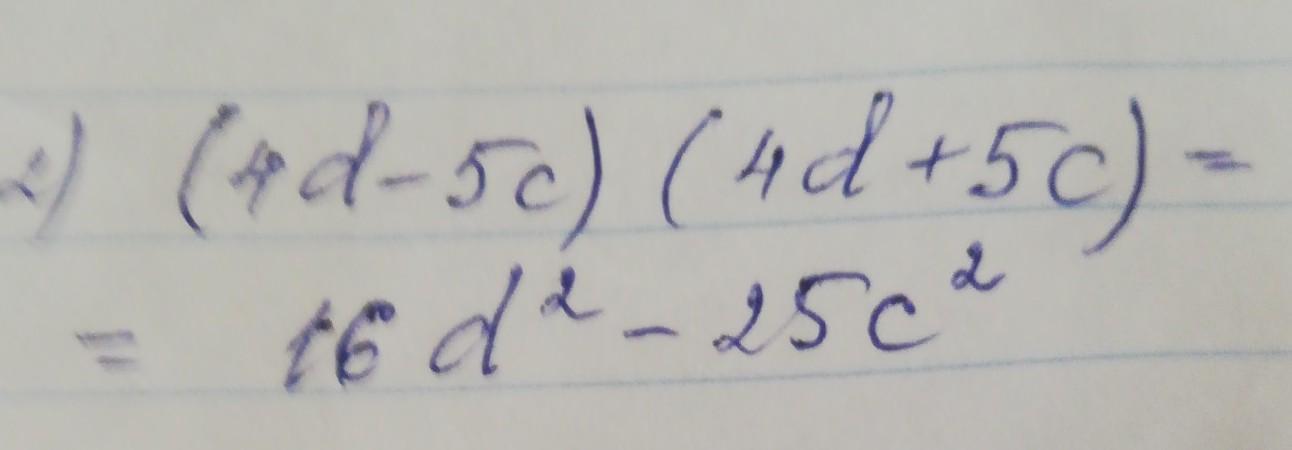 2) (4d-5c) (4d+5c)=
= 16d²-25c²